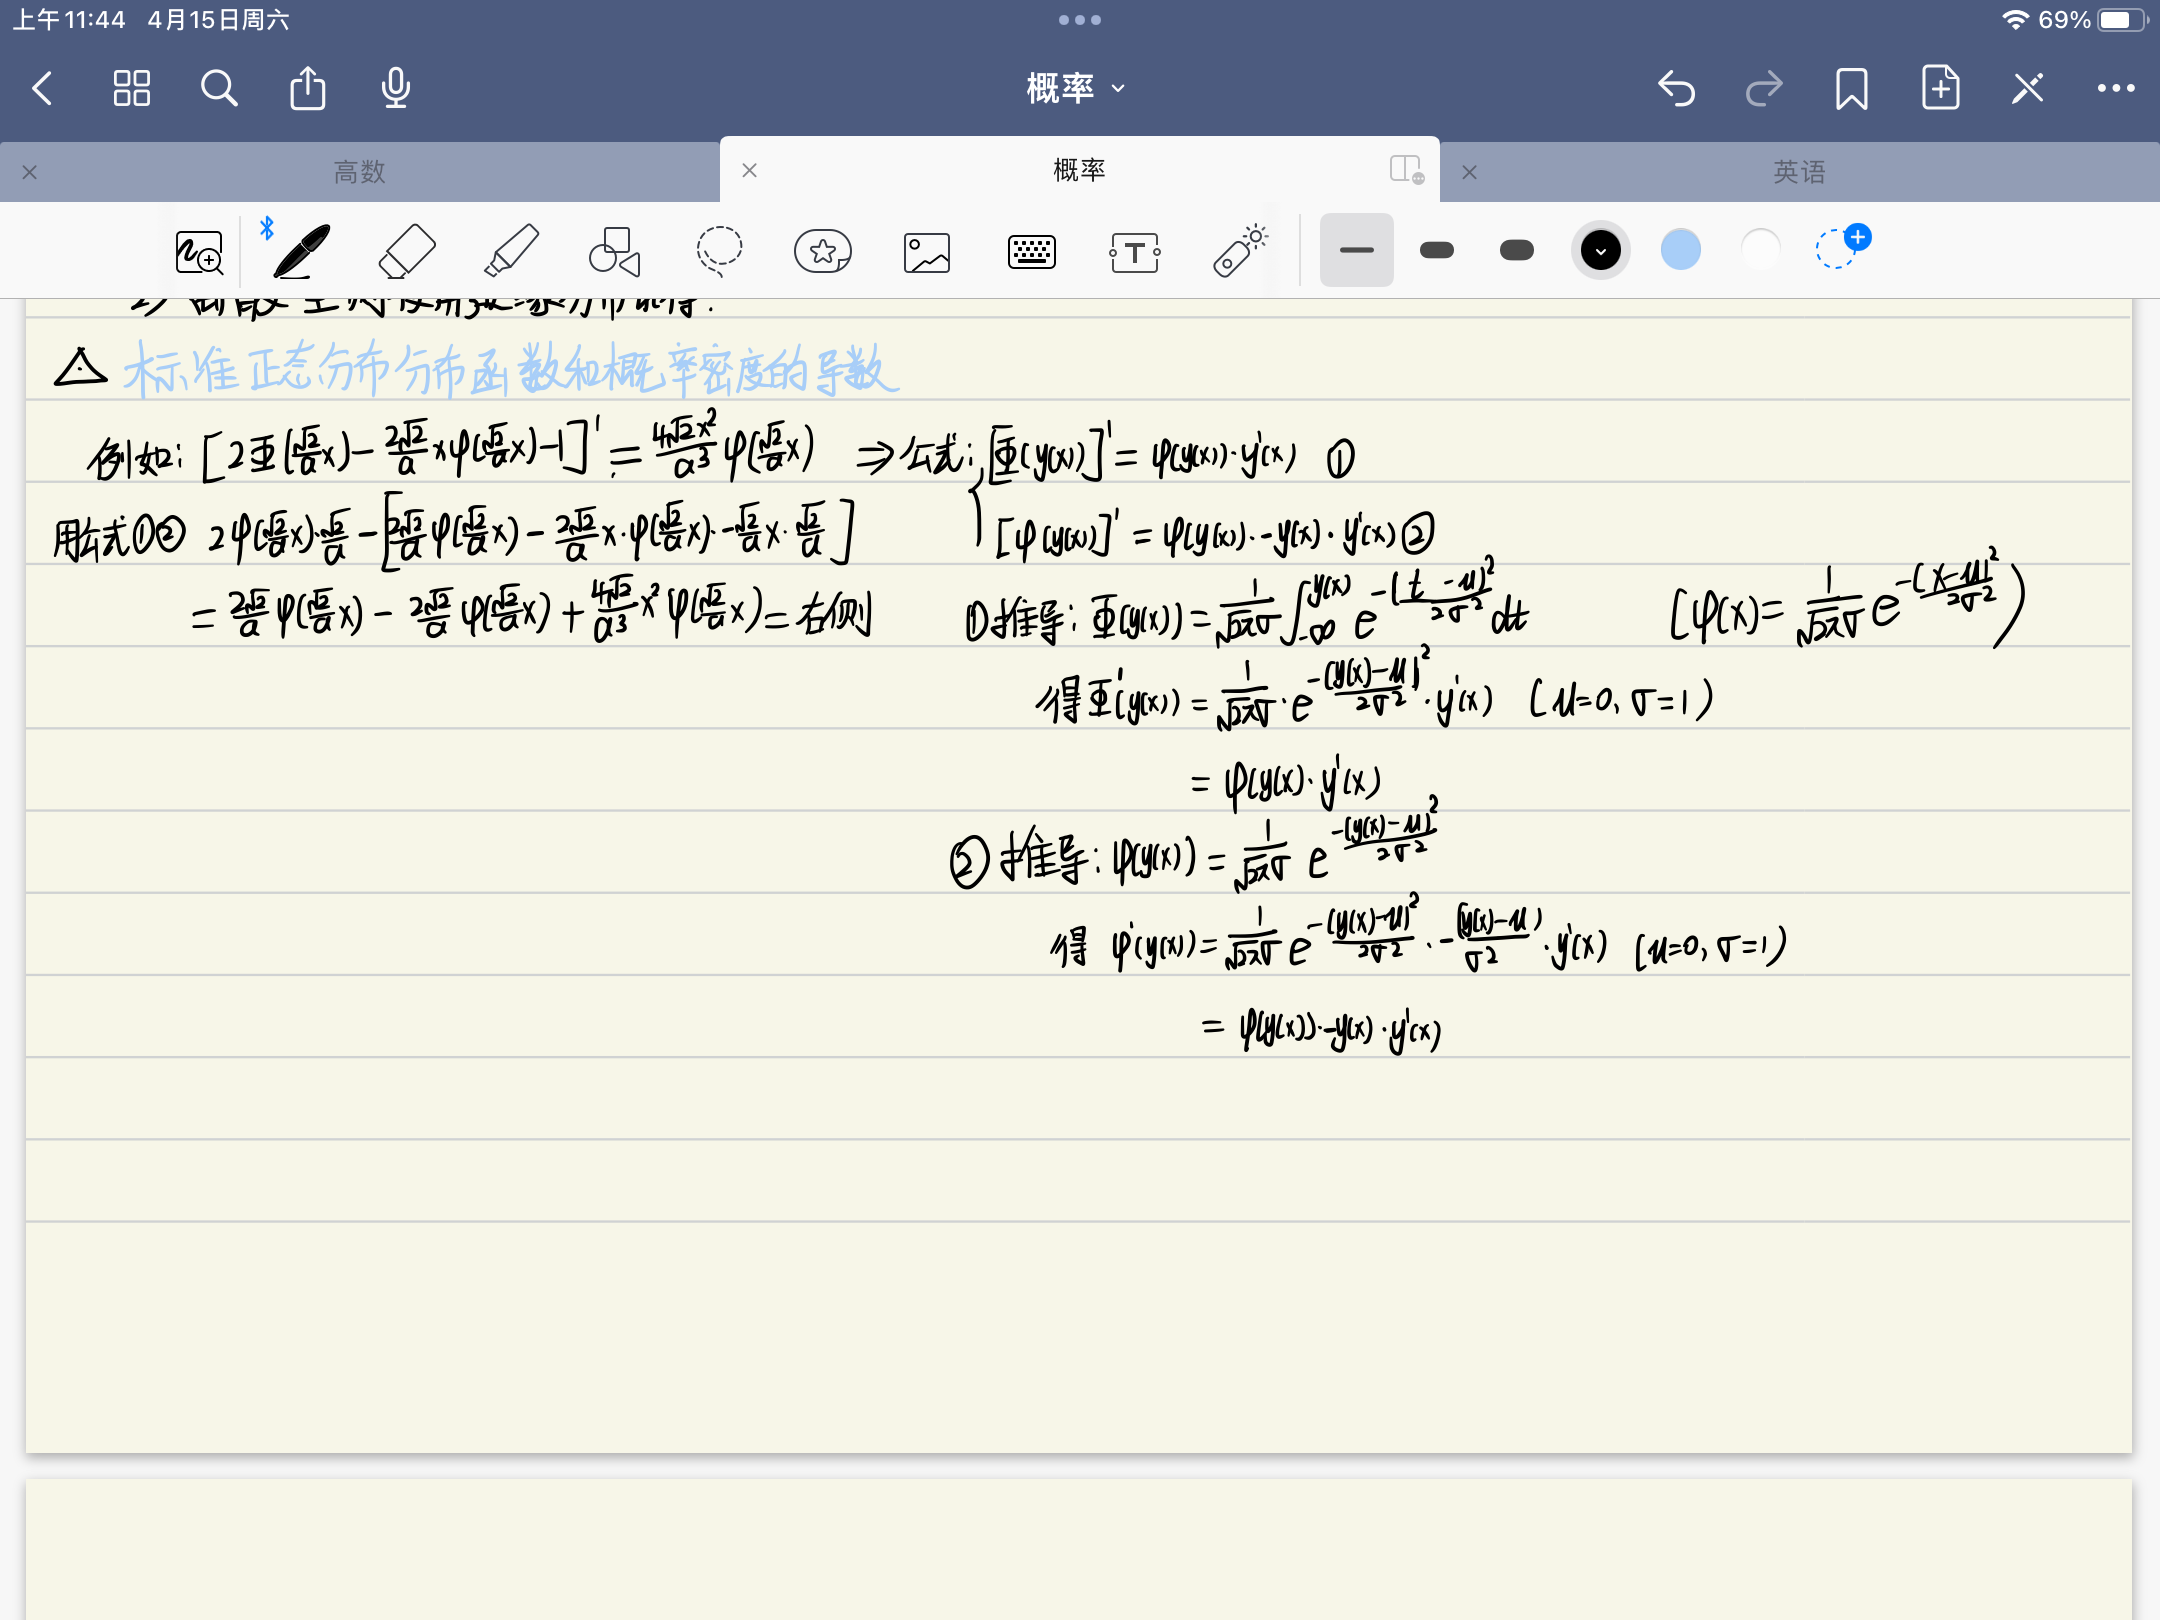 上午11:44 4月15日周六 69%
概率
高数 概率 英语
T
△ 标准正态分布分布函数和概率密度的导数
例如: [2Φ(√2/a x) − 2√2/a xφ(√2/a x) − 1]' = 4√2x²/a³ φ(√2/a x) ⇒ 公式: [Φ(y(x))]' = φ(y(x))·y'(x) ①
[φ(y(x))]' = φ(y(x))·−y(x)·y'(x) ②
用公式①② 2φ(√2/a x)·√2/a − [2√2/a φ(√2/a x) − 2√2/a x·φ(√2/a x)·−√2/a x·√2/a]
= 2√2/a φ(√2/a x) − 2√2/a φ(√2/a x) + 4√2/a³ x² φ(√2/a x) = 右侧
①推导: Φ(y(x)) = 1/√2πσ ∫_{-∞}^{y(x)} e^{−(t−μ)²/2σ²} dt (φ(x) = 1/√2πσ e^{−(x−μ)²/2σ²})
得Φ'(y(x)) = 1/√2πσ · e^{−(y(x)−μ)²/2σ²} · y'(x) (μ=0, σ=1)
= φ(y(x)·y'(x)
②推导: φ(y(x)) = 1/√2πσ e^{−(y(x)−μ)²/2σ²}
得 φ'(y(x)) = 1/√2πσ e^{−(y(x)−μ)²/2σ²} · −(y(x)−μ)/σ² · y'(x) (μ=0, σ=1)
= φ(y(x))·−y(x)·y'(x)